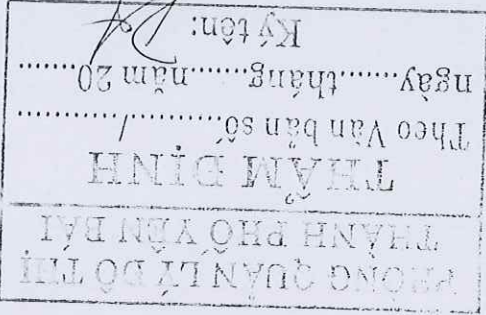 PHÒNG QUẢN LÝ ĐÔ THỊ
THÀNH PHỐ YÊN BÁI
THẨM ĐỊNH
Theo Văn bản số............/...............
ngày........tháng........năm 20........
Ký tên: